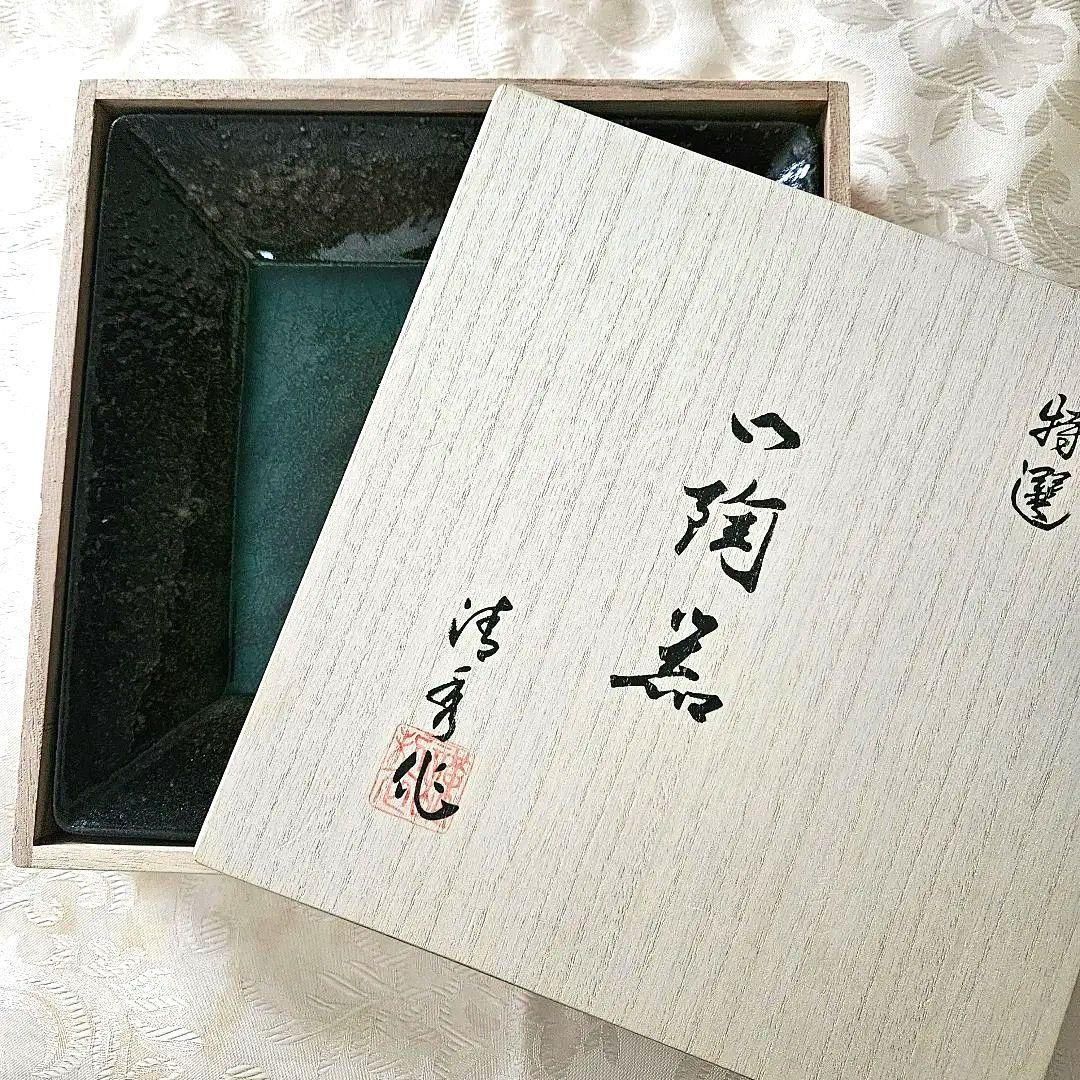 特選
陶器
清秀作